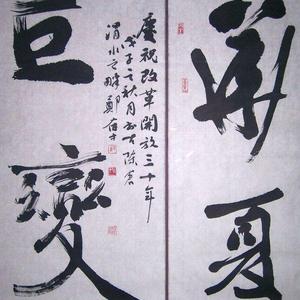 华夏
巨变
庆祝改革開放三十年
戊子之秋月於古陈仓
渭水之畔郑